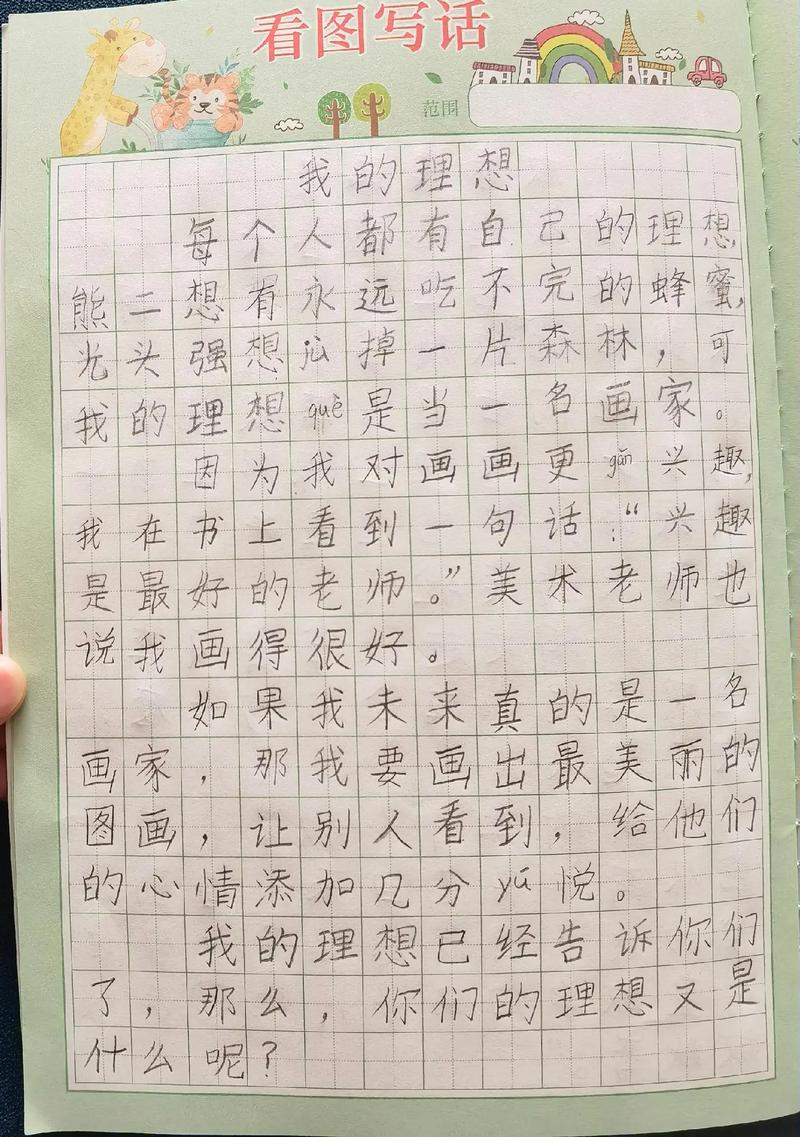 看图写话
范围
我的理想
每个人都有自己的理想
熊二想有永远吃不完的蜂蜜,
光头强想掉一片森林，可
我的理想què是当一名画家。
因为我对画画更gǎn兴趣,
我在书上看到一句话:“兴趣
是最好的老师。”美术老师也
说我画得很好。
如果我未来真的是一名
画家，那我要画出最美丽的
图画，让别人看到，给他们
的心情添加几分yú悦。
我的理想已经告诉你们
了，那么，你们的理想又是
什么呢？